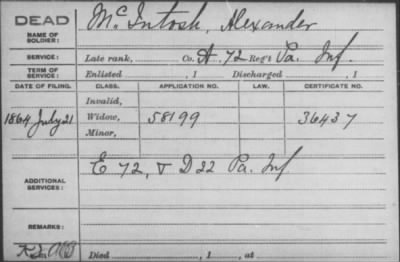 DEAD
NAME OF SOLDIER: McIntosh, Alexander
SERVICE: Late rank, Co. A. 72 Reg't Pa. Inf.
TERM OF SERVICE: Enlisted , 1 Discharged , 1
DATE OF FILING. CLASS. APPLICATION NO. LAW. CERTIFICATE NO.
Invalid,
1864 July 21 Widow, 58199 36437
Minor,
ADDITIONAL SERVICES: E 72, & D 22 Pa. Inf.
REMARKS:
Died , 1 , at